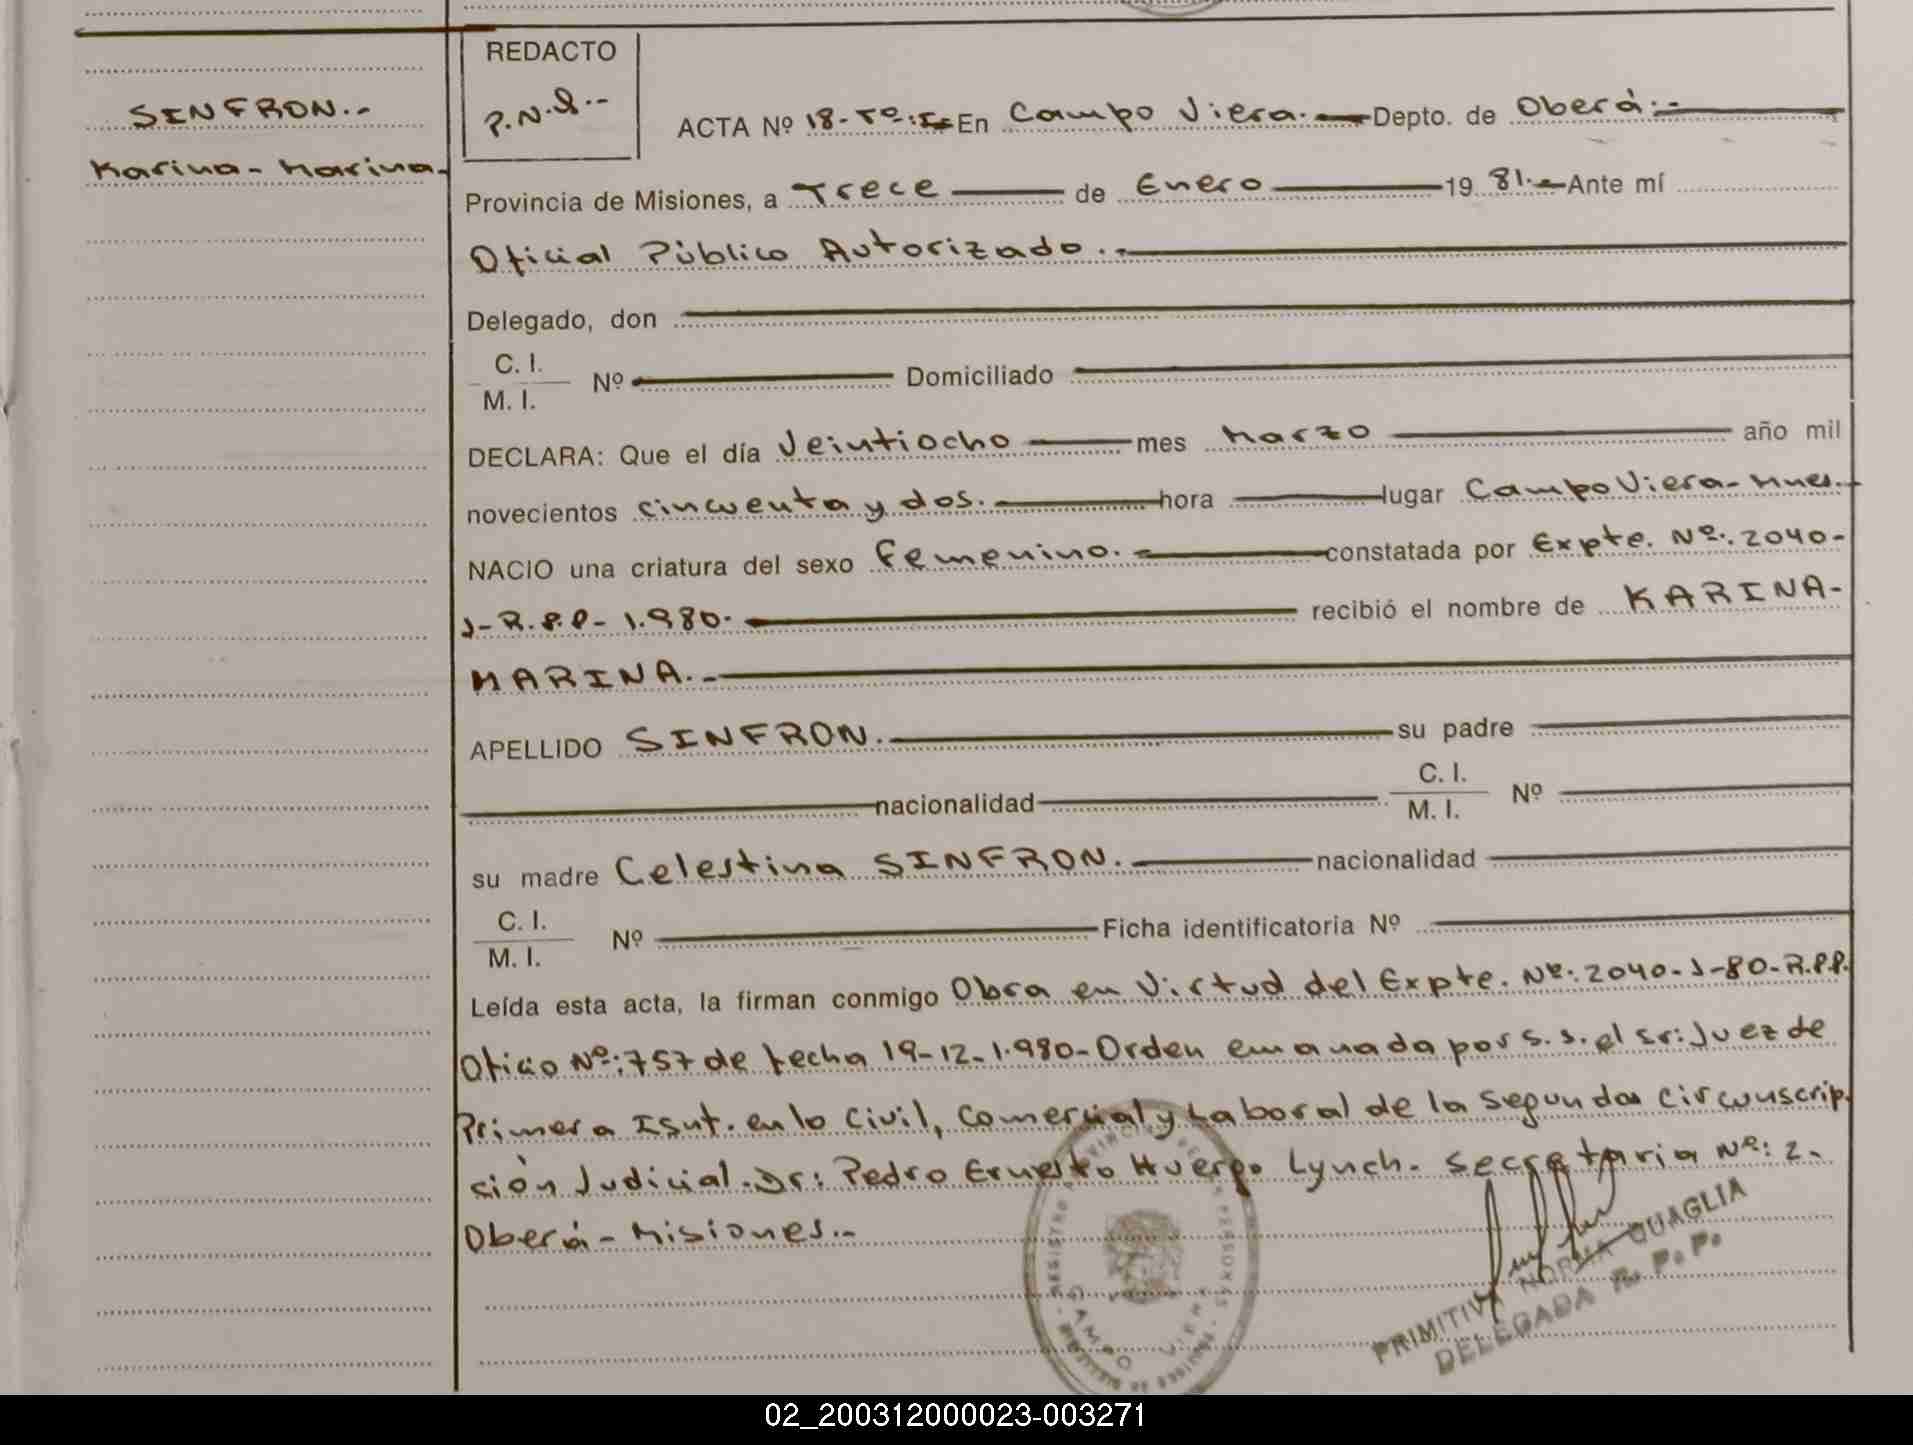 REDACTO
P.N.Q.--
SINFRON.--
Karina-Marina-
ACTA Nº 18-Tº:I- En Campo Viera.- Depto. de Oberá.-
Provincia de Misiones, a Trece de Enero 19 81.- Ante mí
Oficial Público Autorizado.-
Delegado, don
C. I.
M. I. Nº Domiciliado
DECLARA: Que el día Veintiocho mes Marzo año mil
novecientos cincuenta y dos.- hora lugar Campo Viera-Mnes.-
NACIO una criatura del sexo Femenino.- constatada por Expte. Nº:.2040-
J-R.P.P-1.980.- recibió el nombre de KARINA-
MARINA.-
APELLIDO SINFRON.- su padre
nacionalidad C. I.
M. I. Nº
su madre Celestina SINFRON.- nacionalidad
C. I.
M. I. Nº Ficha identificatoria Nº
Leída esta acta, la firman conmigo Obra en Virtud del Expte. Nº:.2040-J-80-R.P.P.
Oficio Nº:.757 de fecha 19-12-1.980-Orden emanada por S.S. el Sr: Juez de
Primera Isnt. en lo Civil, Comercial y Laboral de la Segunda Circunscrip.
ción Judicial.-Dr: Pedro Ernesto Huergo Lynch.- Secretaria Nº: 2.
Oberá-Misiones.-
REGISTRO PROVINCIAL DE LAS PERSONAS
CAMPO VIERA
PRIMITIVA NORMA QUAGLIA
DELEGADA R. P. P.
02_200312000023-003271